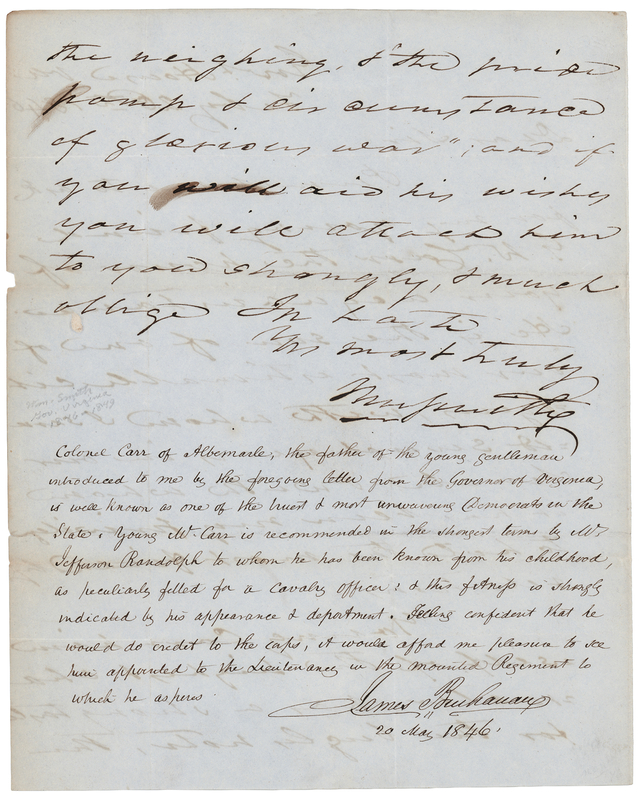 the neighing, & the pride
pomp & circumstance
of glorious war"; and if
you will aid his wishes
you will attach him
to you strongly, & much
oblige In haste
Yrs most truly
Wm Smith
Wm. Smith
Gov. Virginia
1846-1849
Colonel Carr of Albemarle, the father of the young gentleman
introduced to me by the foregoing letter from the Governor of Virginia,
is well known as one of the truest & most unwavering Democrats in the
State. Young Mr. Carr is recommended in the strongest terms by Mr.
Jefferson Randolph to whom he has been known from his childhood,
as peculiarly fitted for a Cavalry officer: & this fitness is strongly
indicated by his appearance & deportment. Feeling confident that he
would do credit to the corps, it would afford me pleasure to see
him appointed to the Lieutenancy in the mounted Regiment to
which he asperes.
James Buchanan
20 May 1846.